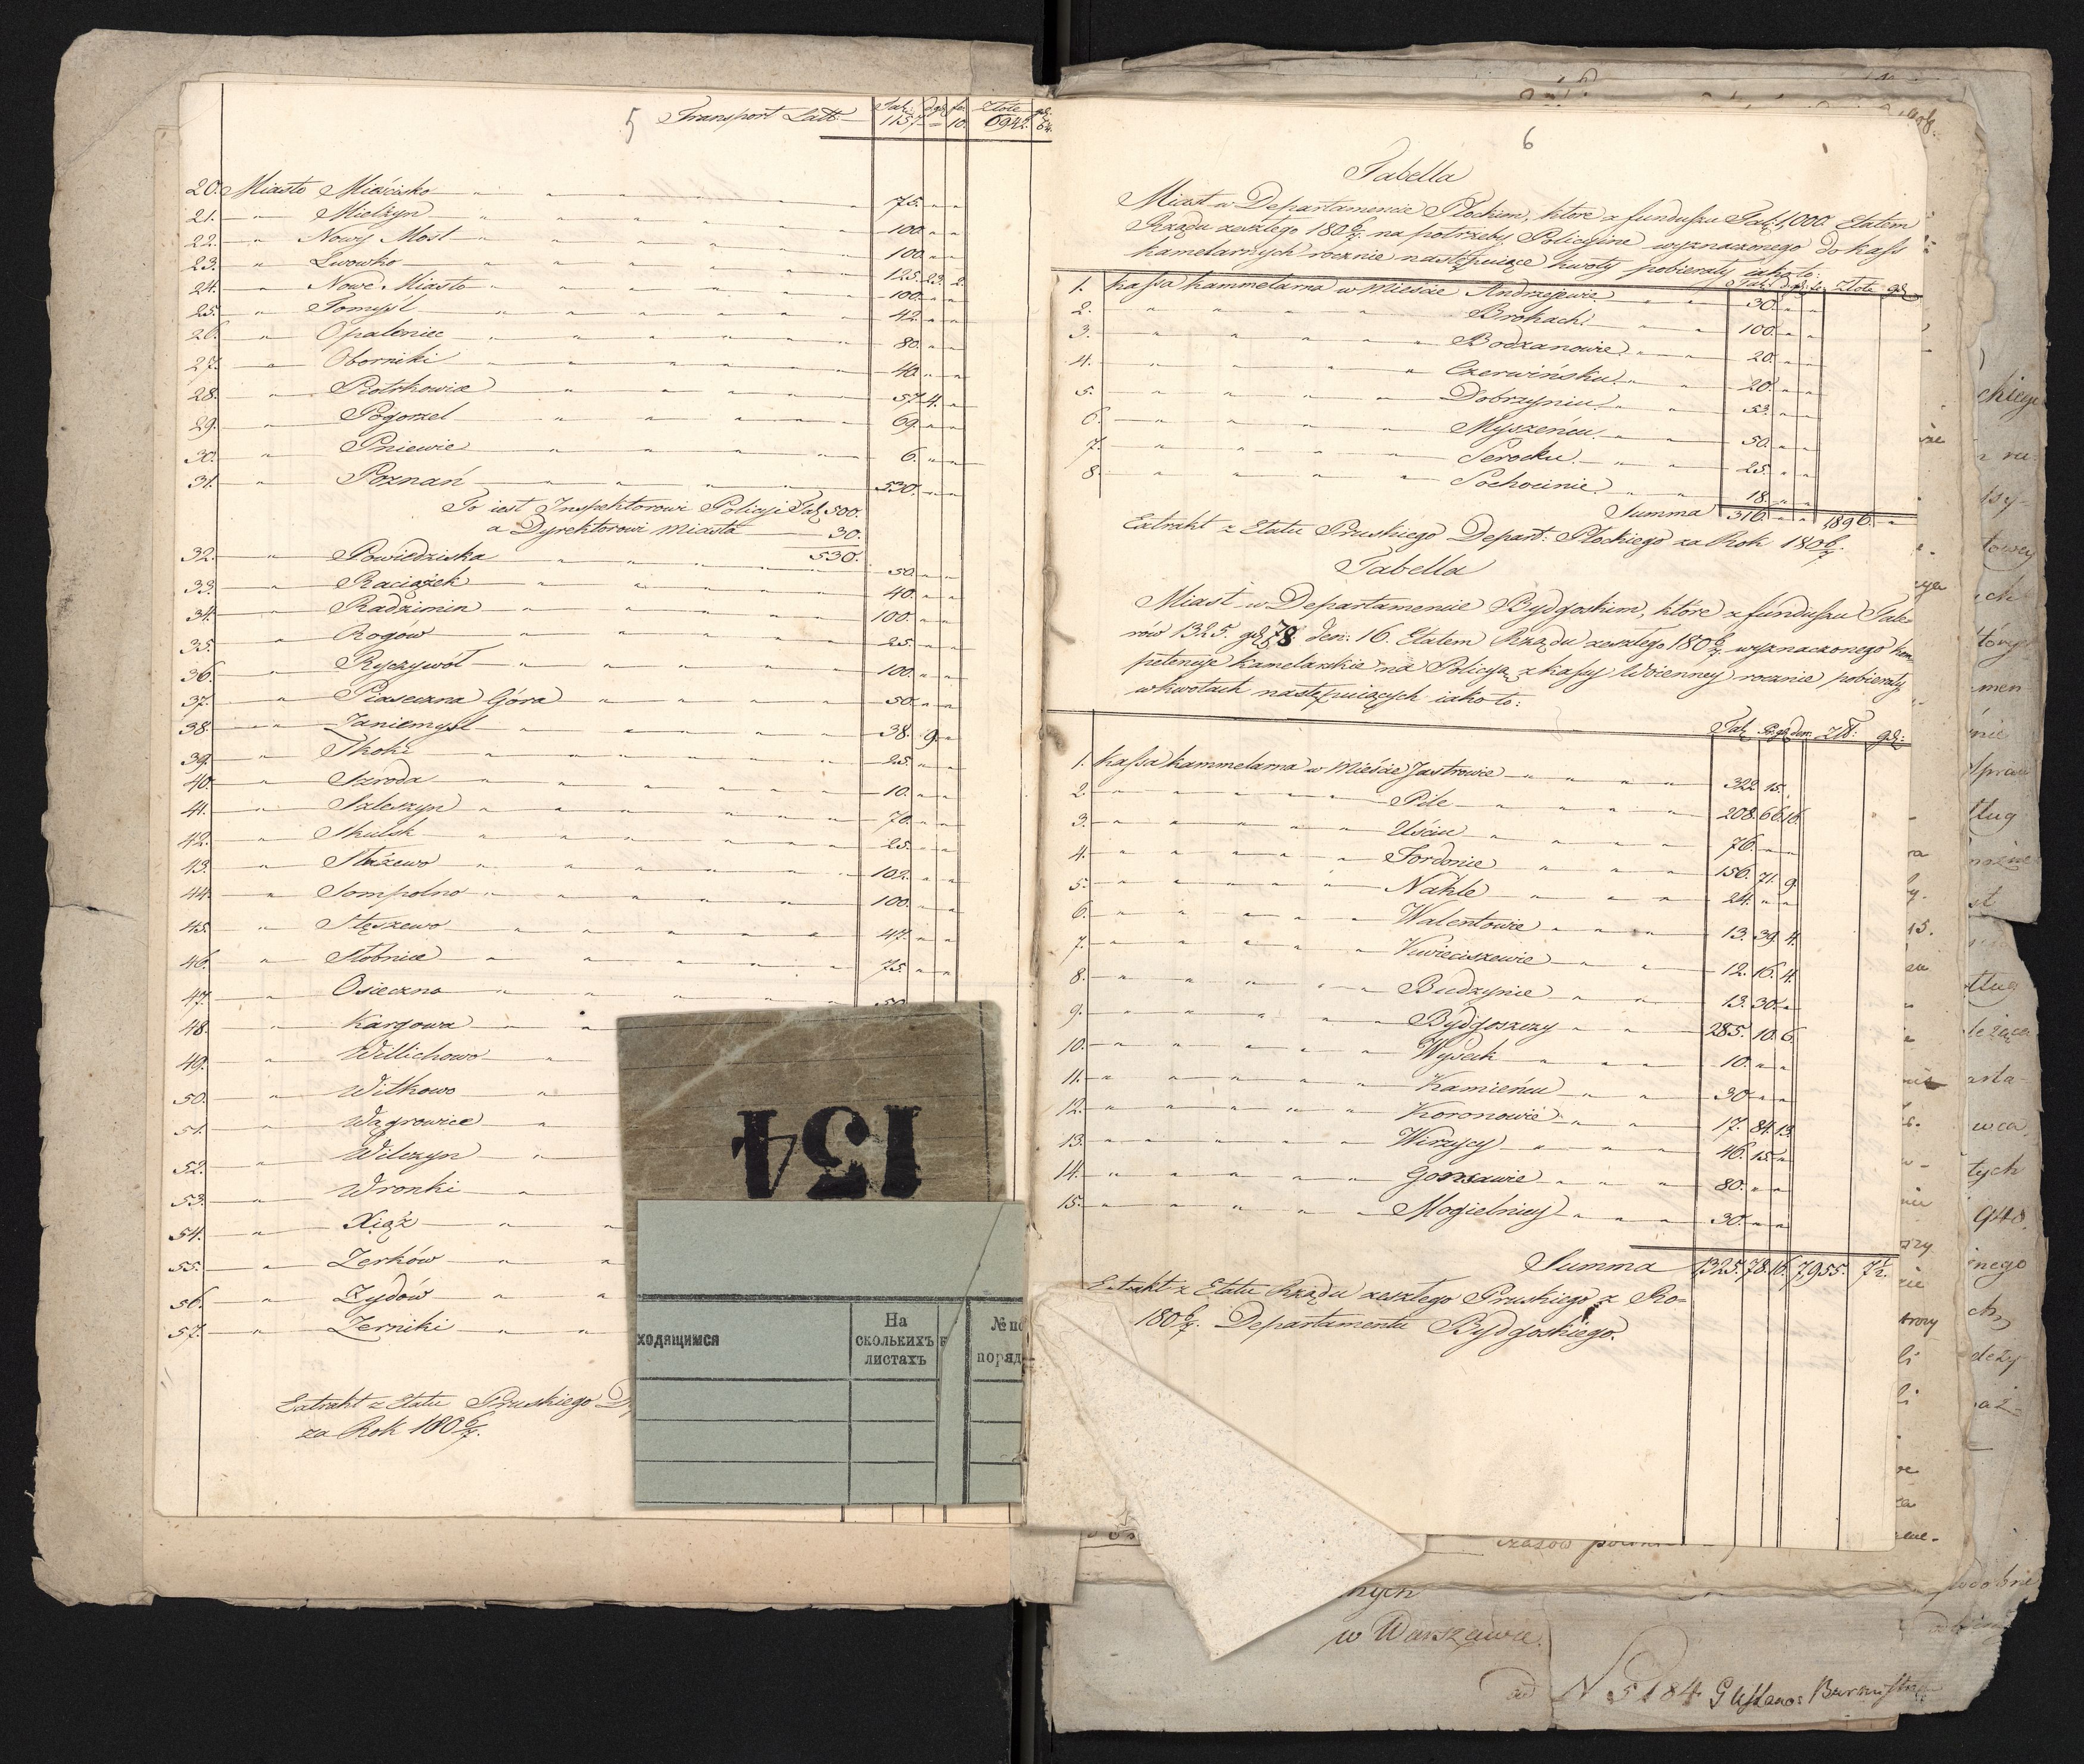 5 Transport Latt Tal: dgr fe: Złote gr:
1157 " 10. 6942.
20. Miasto Mieścisko " " " 75. " "
21. " Mielżyn " " " 100 " "
22. " Nowy Most " " " 100. " "
23. " Lwowko " " " 125. 23. 2.
24. " Nowe Miasto " " " 100. " "
25. " Tomyśl " " " 42. " "
26. " Opaleniec " " " 80. " "
27. " Oborniki " " " 40. " "
28. " Piotrkowice " " " 57. 4. "
29. " Pogorzel " " " 69. " "
30. " Pniewie " " " 6. " "
31. " Poznań " " " 530. " "
To iest Inspektorowi Policyi Tal: 500.
a Dyrektorowi Miasta 30.
530.
32. " Powiedziska " " " 50. " "
33. " Raciążek " " " 40. " "
34. " Radzimin " " " 100. " "
35. " Rogów " " " 25. " "
36. " Ryczywół " " " 100. " "
37. " Piaseczna Góra " " " 50. " "
38. " Zaniemysl " " " 38. 9. "
39. " Skoki " " " 25. " "
40. " Szroda " " " 10. " "
41. " Szleszyn " " " 70. " "
42. " Skulsk " " " 25. " "
43. " Stażewo " " " 102. " "
44. " Sompolno " " " 100. " "
45. " Stęszewo " " " 47. " "
46. " Stobnica " " " 75. " "
47. " Osieczna " " " 50.
48. " Kargowa " "
49. " Willichowo "
50. " Witkowo "
51. " Wągrowice "
52. " Wilczyn "
53. " Wronki "
54. " Xiąż " "
55. " Zerków " "
56. " Zydów " "
57. " Zerniki " "
Extrakt z Etatu Pruskiego D
za Rok 180 6/7.
154
ходящимся
На
сколькихъ
листахъ
№ по
поряд
6
Tabella
Miast w Departamencie Płockim, które z funduszu Tal: 1,000 Etatem
Rządu zeszłego 180 6/7. na potrzeby Policyine wyznaczonego do kass
kamelarnych rocznie następuiące kwoty pobierały iako to:
Tal: dgr: fe: Złote gr:
1. Kassa kammelarna w Mieście Andrzejewie " " 30. " "
2. " " " " Brokach " " 100. " "
3. " " " " Bodzanowie " " 20. " "
4. " " " " Czerwińsku " " 20. " "
5. " " " " Dobrzyniu " " 53. " "
6. " " " " Myszeńcu " " 50. " "
7. " " " " Serocku " " 25. " "
8. " " " " Sochocinie " " 18. " "
Summa 316. " " 1896. "
Extrakt z Etatu Pruskiego Depart: Płockiego za Rok 180 6/7.
Tabella
Miast w Departamencie Bydgoskim, które z funduszu Tale=
rów 1325. gr 78 den: 16. Etatem Rządu zeszłego 180 6/7. wyznaczonego kom=
petencye kamelarskie na Policyą z kassy Woienney rocznie pobierały
w kwotach następuiących iako to:
Tal: gr: den: Zł: gr:
1. Kassa kammelarna w Mieście Jastrowie " " " 322 15.
2. " " " " Pile " " " 208. 66 16.
3. " " " " Uściu " " " 76. " "
4. " " " " Fordonie " " " 156. 71. 9.
5. " " " " Nakle " " " 24. " "
6. " " " " Walentowie " " " 13. 39. 4.
7. " " " " Kwieciszewie " " " 12. 16. 4.
8. " " " " Budzynie " " " 13. 30. "
9. " " " " Bydgoszczy " " " 285. 10. 6.
10. " " " " Wysock " " " 10. " "
11. " " " " Kamieńcu " " " 30 " "
12. " " " " Koronowie " " " 17. 84. 13.
13. " " " " Wirzycy " " " 46. 15. "
14. " " " " Gonsawie " " " 80. " "
15. " " " " Mogielnicy " " " 30. " "
Summa 1325. 78. 16. 7,955. 7½.
Extrakt z Etatu Rządu zeszłego Pruskiego z Ro=
180 6/7. Departamentu Bydgoskiego.
nych
w Warszawie.
ad N 5184